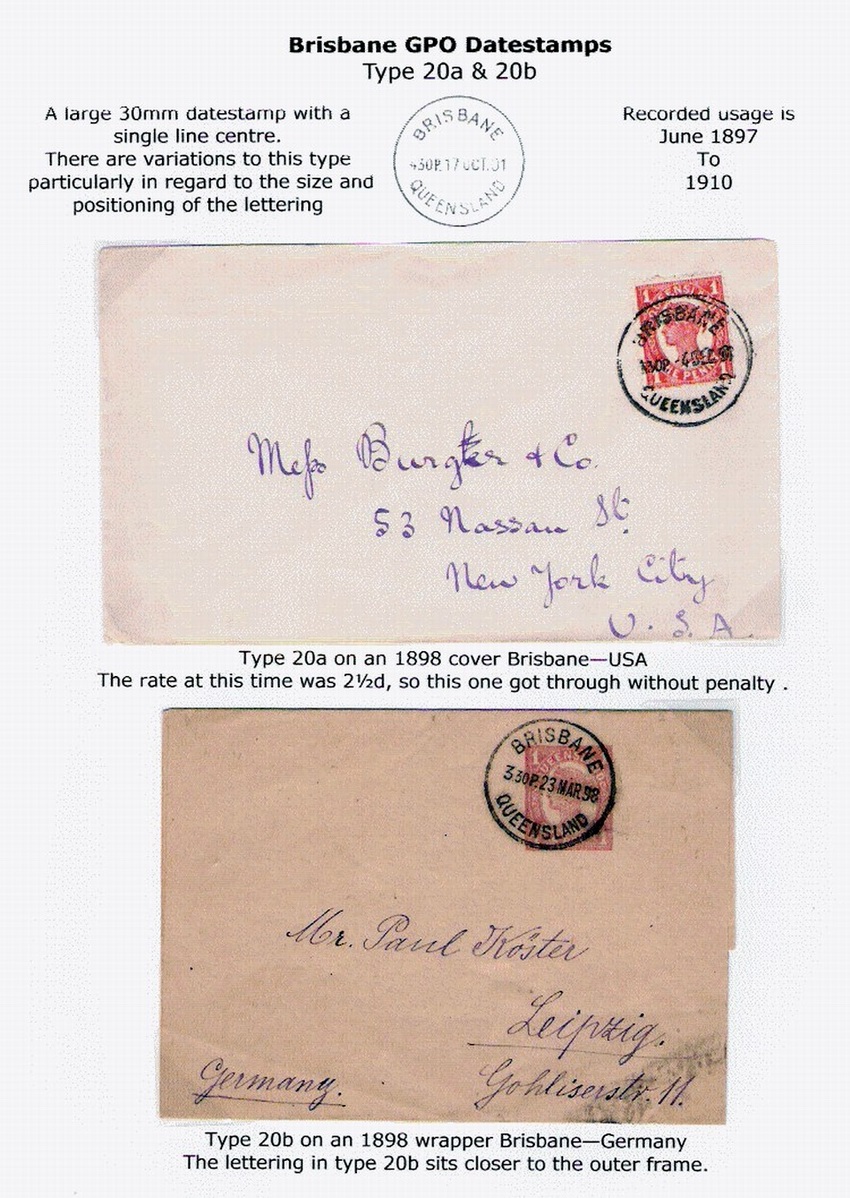 Brisbane GPO Datestamps
Type 20a & 20b
A large 30mm datestamp with a
single line centre.
There are variations to this type
particularly in regard to the size and
positioning of the lettering
BRISBANE
430P.17 OCT.01
QUEENSLAND
Recorded usage is
June 1897
To
1910
BRISBANE
QUEENSLAND
Mess Burger & Co.
53 Nassau St.
New York City
U. S. A.
Type 20a on an 1898 cover Brisbane—USA
The rate at this time was 2½d, so this one got through without penalty .
BRISBANE
3.30P.23 MAR.98
QUEENSLAND
Mr. Paul Köster
Leipzig.
Germany.
Gohliserstr. 11.
Type 20b on an 1898 wrapper Brisbane—Germany
The lettering in type 20b sits closer to the outer frame.